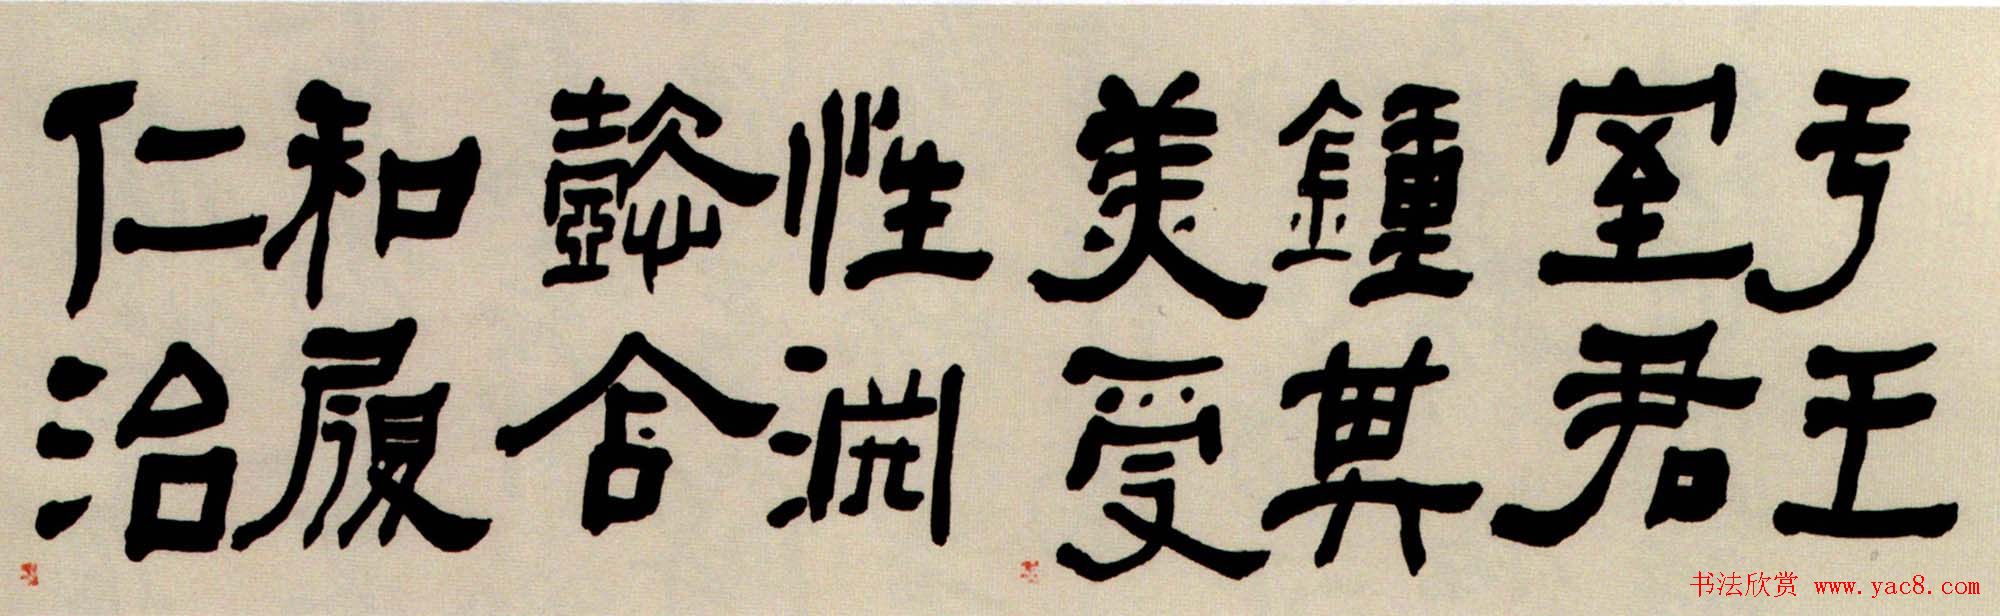 于王
室君
鍾其
美受
性淵
懿含
和履
仁治
书法欣赏 www.yac8.com